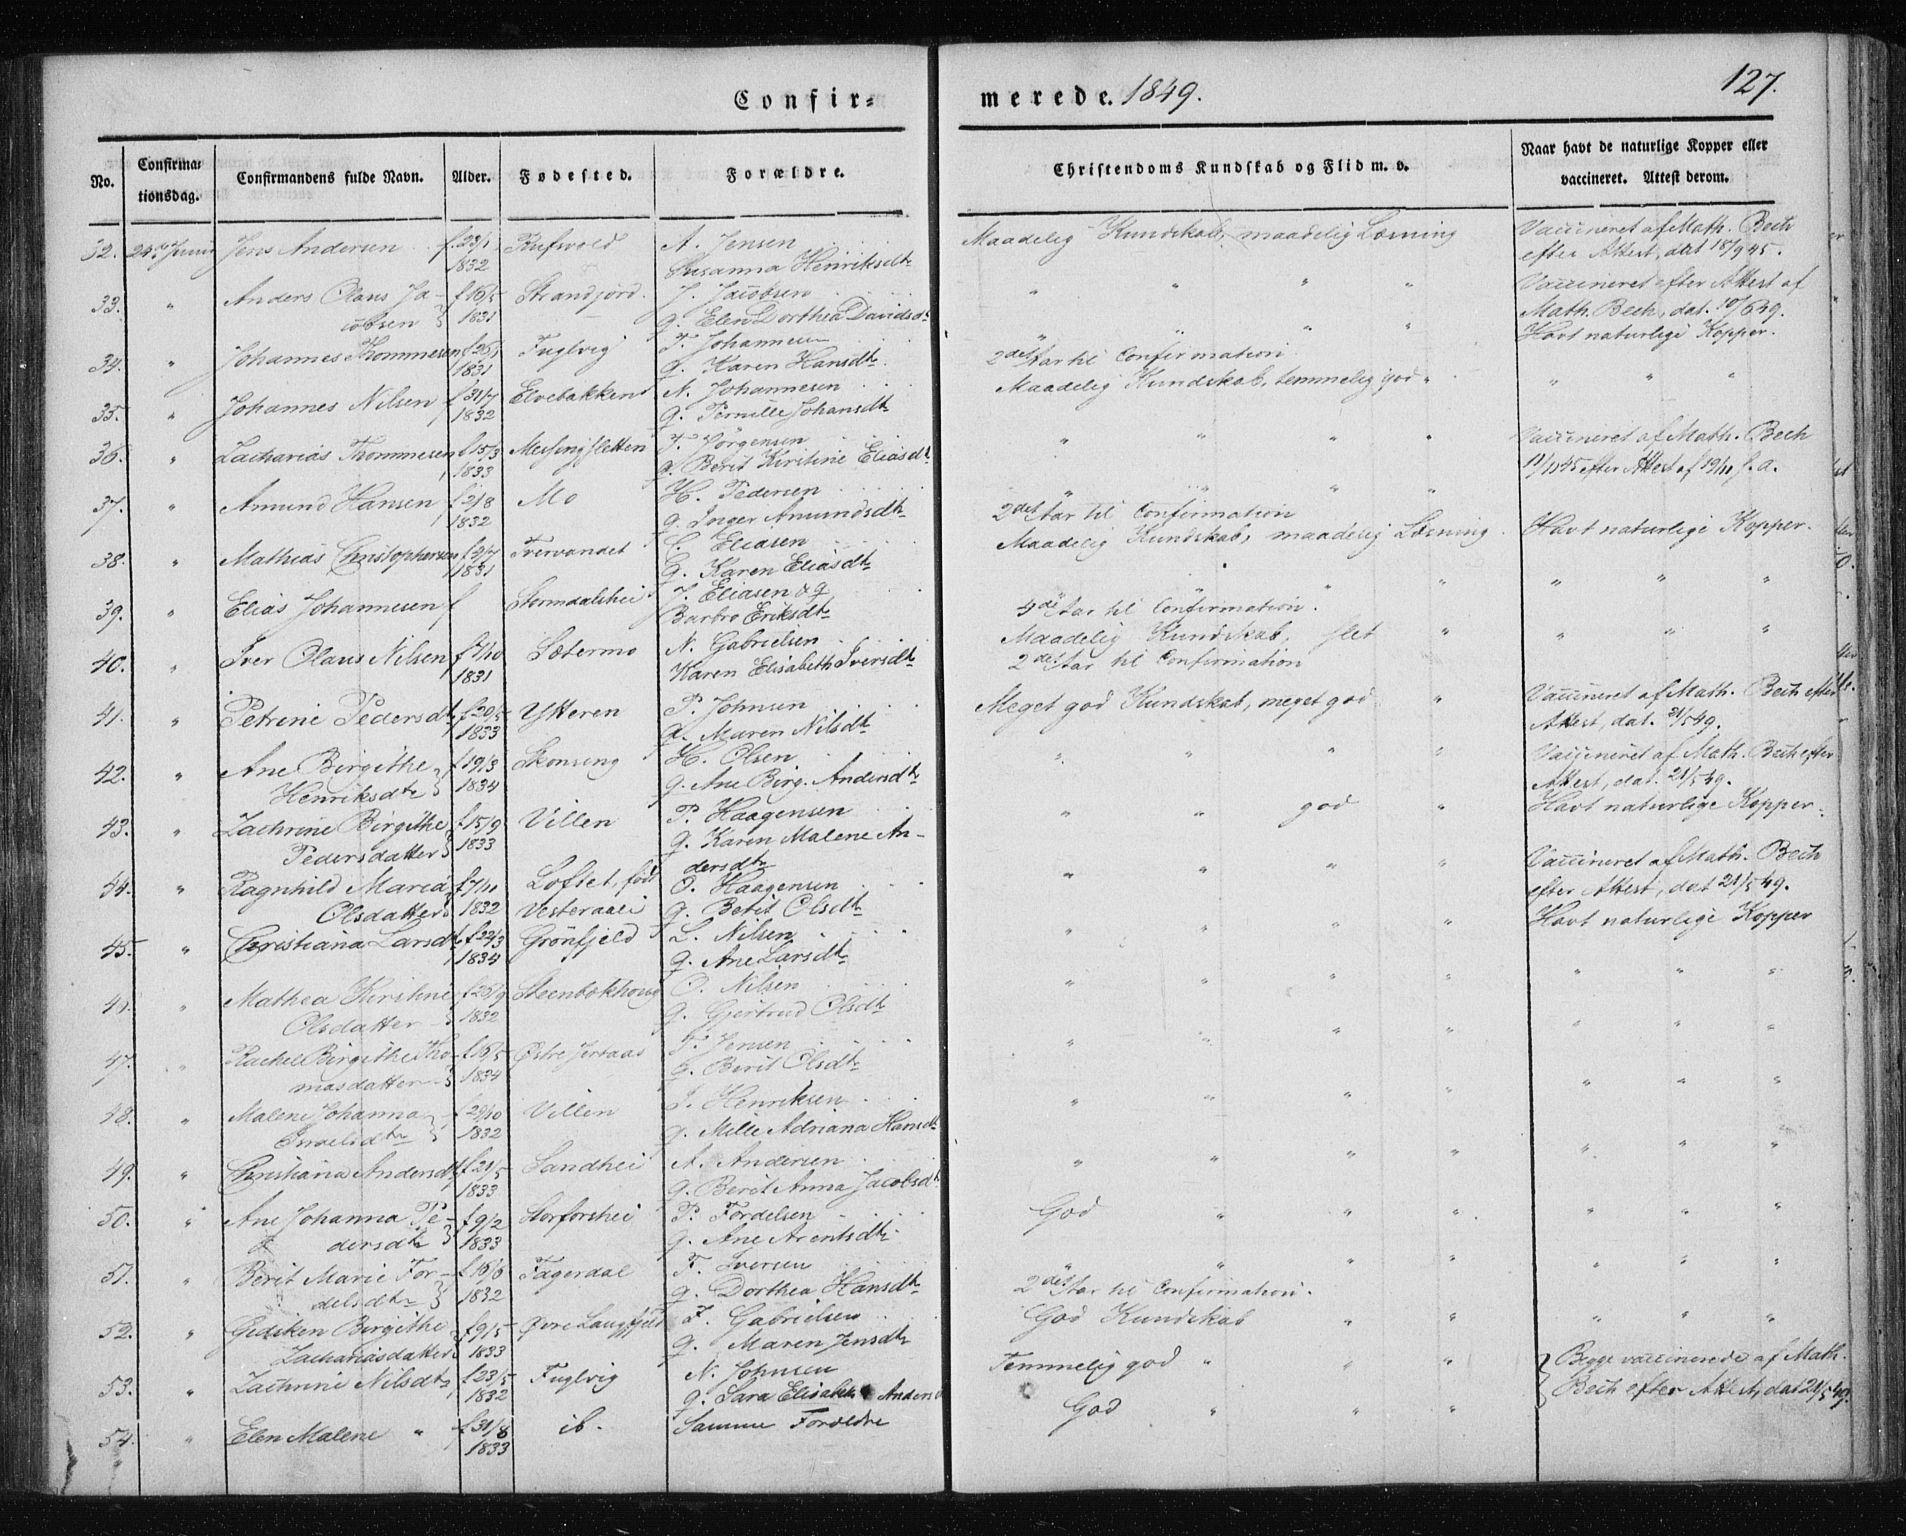 Confir-
merede. 1849.
127.
No.
Confirma-
tionsdag.
Confirmandens fulde Navn.
Alder.
Fødested.
Forældre.
Christendoms Kundskab og Flid m. v.
Naar havt de naturlige Kopper eller
vaccineret. Attest derom.
32. 24de Juni Jens Andersen f. 23/1 Rufsvold A. Jensen Maadelig Kundskab, maadelig Læsning Vaccineret af Math. Bech
1832 Susanna Henriksdtr efter Attest, dat 18/9 45.
33. " Anders Olaus Ja- f 16/5 Strandjord. J. Jacobsen " " " " Vaccineret efter Attest af
cobsen } 1831 g. Elen Dorthea Davidsdtr Math. Bech, dat. 10/6 49.
34. " Johannes Thommesen f 26/1 Fuglvig T. Johannesen " " " " Havt naturlige Kopper.
1831 g. Karen Hansdtr 2det Aar til Confirmation
35. " Johannes Nilsen f 31/7 Elvebakken N. Johannesen Maadelig Kundskab, temmelig god " " " "
1832 g. Pernille Johansdtr
36. " Zacharias Thommesen f 15/3 Messingsletten T. Jörgensen " " " " Vaccineret af Math. Bech
1833 g. Berit Kirstine Eliasdtr 11/11 45 efter Attest af 19/11 s. a.
37. " Amund Hansen f 2/8 Mo H. Pedersen " " " "
1832 g. Inger Amundsdtr 2det Aar til Confirmation
38. " Mathias Christophersen f 9/7 Tvervandet C. Eliasen Maadelig Kundskab, maadelig Læsning. Havt naturlige Kopper.
1831 g. Karen Eliasdtr
39. " Elias Johannesen f Stormdalshei J. Eliasen & g " " " " " "
Barbro Eriksdtr 4de Aar til Confirmation.
40. " Iver Olaus Nilsen f 7/10 Sætermo N. Gabrielsen Maadelig Kundskab, slet " " " "
1831 Karen Elisabeth Iversdtr 2det Aar til Confirmation
41. " Petrine Pedersdtr f 20/5 Ytteren P. Johnsen Meget god Kundskab, meget god " Vaccineret af Math. Bech efter
1833 g. Maren Nilsdtr Attest, dat. 21/5 49.
42. " Ane Birgithe f 19/3 Skonseng H. Olsen " " " " Vaccineret af Math. Bech efter
Henriksdtr } 1834 g. Ane Birg. Andersdtr Attest, dat. 21/5 49.
43. " Zachrine Birgithe f 15/9 Villen P. Haagensen " " god " Havt naturlige Kopper.
Pedersdatter } 1833 g. Karen Malene An-
dersdtr
44. " Ragnhild Maria f 7/11 Loftet, född O. Haagensen " " " " Vaccineret af Math. Bech
Olsdatter } 1832 Vesteraali g. Berit Olsdtr efter Attest, dat 21/5 49.
45. " Christiana Larsdtr f 22/3 Grönfjeld L. Nilsen " " " " Havt naturlige Kopper
1834 g. Ane Larsdtr
" Mathea Kirstine f 26/9 Steenbokhoug O. Nilsen " " " " " " "
Olsdatter } 1832 g. Gjertrud Olsdtr
47. " Rachel Birgithe Tho- f 16/5 Østre T. Jensen " " " " " " "
masdatter } 1834 g. Berit Olsdtr
48. " Malene Johanna f 29/10 Villen I. Henriksen " " " " " " "
Israelsdtr } 1832 g. Mille Adriana Hansdtr
49. " Christiana Andersdtr f 21/5 Sandhei A. Andersen " " " " " " "
1833 g. Berit Anna Jacobsdtr
50. " Ane Johanna Pe- f 9/2 Storforshei P. Fordelsen God " " " " " "
dersdtr } 1833 g. Ane Arentsdtr
51. " Berit Marie For- f 16/6 Fagerdal F. Iversen " " " " " " "
delsdtr } 1832 g. Dorthea Hansdtr 2det Aar til Confirmation.
52. " Gediken Birgithe f 9/5 Øvre Langfjeld Z. Gabrielsen God Kundskab " " " " "
Zachariasdatter } 1833 g. Maren Jensdtr
53. " Zachrine Nilsdtr f 23/5 Fuglvig N. Johnsen Temmelig god " " " } Begge vaccinerede af Math.
1832 g. Sara Elisabeth Anders Bech efter Attest, dat 21/5 49.
54. " Elen Malene " f 31/8 ib. Samme Forældre God " " "
1833